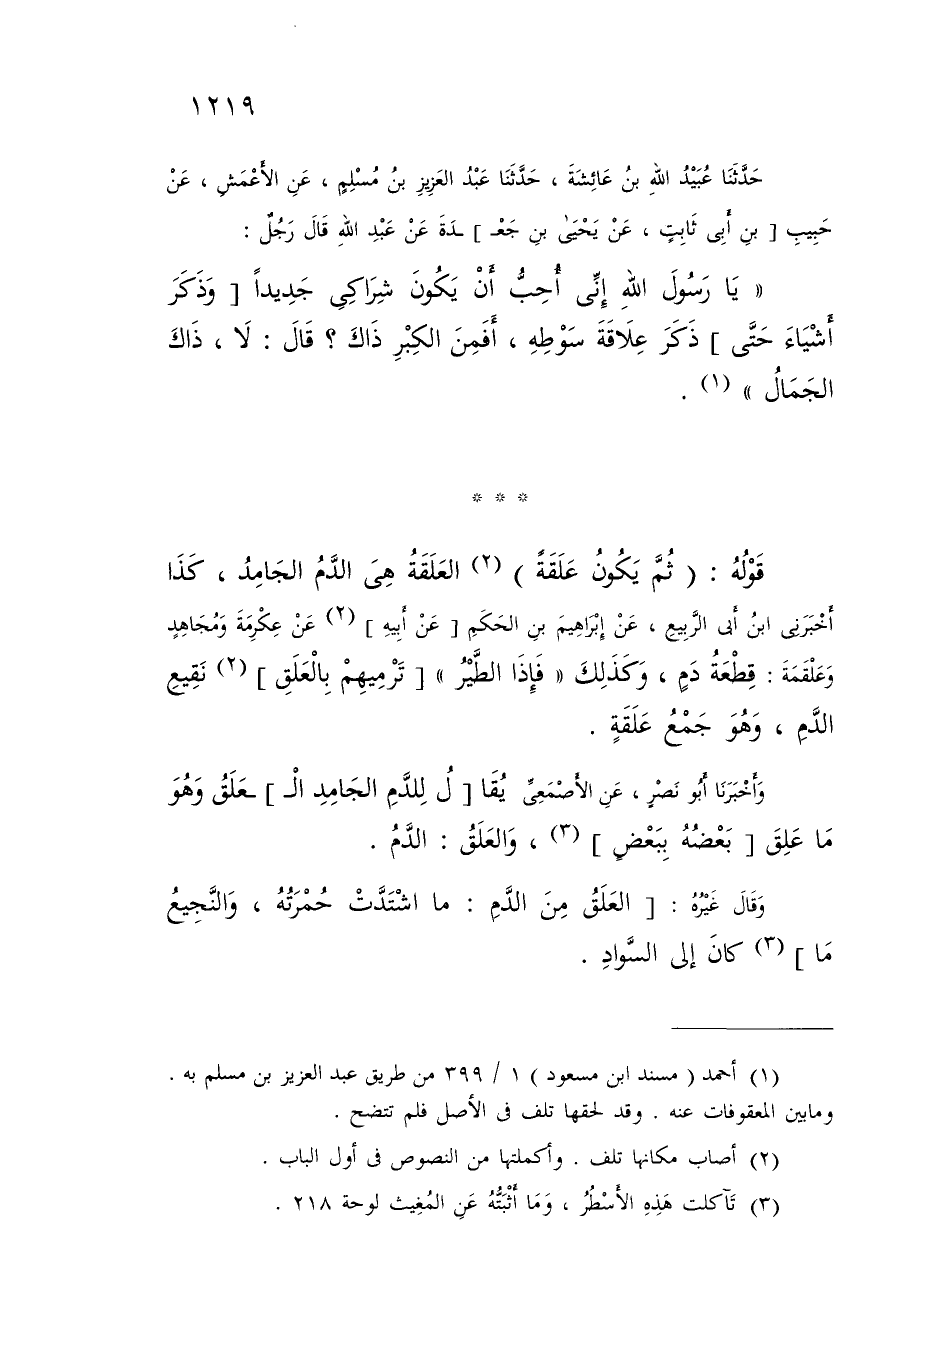 ١٢١٩
حَدَّثَنَا عُبَيْدُ اللهِ بنُ عَائِشَةَ ، حَدَّثَنَا عَبْدُ العَزِيزِ بنُ مُسْلِمٍ ، عَنِ الأَعْمَشِ ، عَنْ
حَبِيبِ [ بنِ أَبِى ثَابِتٍ ، عَنْ يَحْيَىٰ بنِ جَعْـ ] ـدَةَ عَنْ عَبْدِ اللهِ قَالَ رَجُلٌ :
« يَا رَسُولَ اللهِ إِنِّى أُحِبُّ أَنْ يَكُونَ شِرَاكِى جَدِيداً [ وَذَكَرَ
أَشْيَاءَ حَتَّى ] ذَكَرَ عِلَاقَةَ سَوْطِهِ ، أَفَمِنَ الكِبْرِ ذَاكَ ؟ قَالَ : لَا ، ذَاكَ
الجَمَالُ » (١) .
* * *
قَوْلُهُ : ( ثُمَّ يَكُونُ عَلَقَةً ) (٢) العَلَقَةُ هِىَ الدَّمُ الجَامِدُ ، كَذَا
أَخْبَرَنِى ابنُ أَبى الرَّبِيعِ ، عَنْ إِبْرَاهِيمَ بنِ الحَكَمِ [ عَنْ أَبِيهِ ] (٢) عَنْ عِكْرِمَةَ وَمُجَاهِدٍ
وَعَلْقَمَةَ : قِطْعَةُ دَمٍ ، وَكَذَلِكَ « فَإِذَا الطَّيْرُ » [ تَرْمِيهِمْ بِالْعَلَقِ ] (٢) نَقِيعِ
الدَّمِ ، وَهُوَ جَمْعُ عَلَقَةٍ .
وَأَخْبَرَنَا أَبُو نَصْرٍ ، عَنِ الأَصْمَعِىِّ يُقَا [ لُ لِلدَّمِ الجَامِدِ الْـ ] ـعَلَقُ وَهُوَ
مَا عَلِقَ [ بَعْضُهُ بِبَعْضٍ ] (٣) ، وَالعَلَقُ : الدَّمُ .
وَقَالَ غَيْرُهُ : [ العَلَقُ مِنَ الدَّمِ : ما اشْتَدَّتْ حُمْرَتُهُ ، وَالنَّجِيعُ
مَا ] (٣) كانَ إلى السَّوادِ .
(١) أحمد ( مسند ابن مسعود ) ١ / ٣٩٩ من طريق عبد العزيز بن مسلم به .
ومابين المعقوفات عنه . وقد لحقها تلف فى الأصل فلم تتضح .
(٢) أصاب مكانها تلف . وأكملتها من النصوص فى أول الباب .
(٣) تَآكلت هَذِهِ الأَسْطُرُ ، وَمَا أَثْبَتُّهُ عَنِ المُغِيث لوحة ٢١٨ .